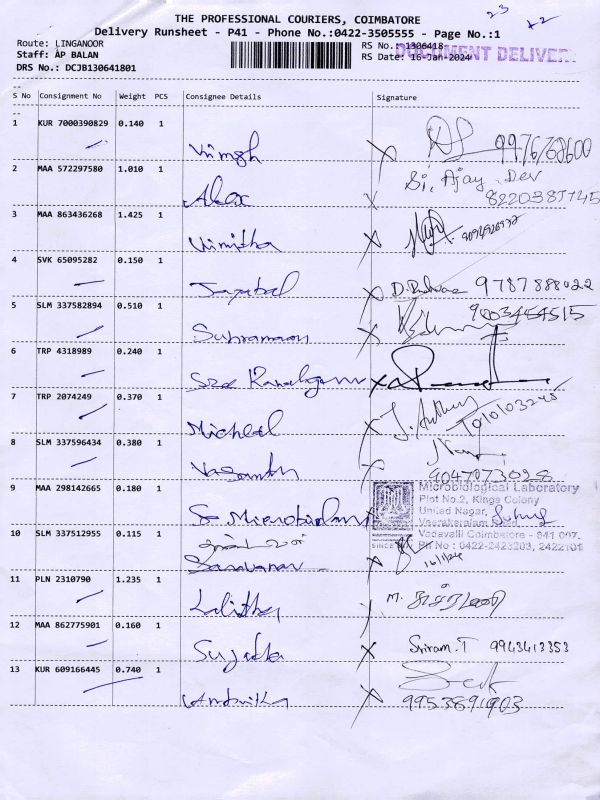 23
THE PROFESSIONAL COURIERS, COIMBATORE
Delivery Runsheet - P41 - Phone No.:0422-3505555 - Page No.:1
Route: LINGANOOR
RS No.: 1306418
DOCUMENT DELIVERY
Staff: AP BALAN
RS Date: 16-Jan-2024
DRS No.: DCJB130641801
S No Consignment No Weight PCS Consignee Details Signature
1 KUR 7000390829 0.140 1
9976768600
2 MAA 572297580 1.010 1 Alex
Ajay Dev
3 MAA 863436268 1.425 1 Vinitha
4 SVK 65095282 0.150 1
9787888022
5 SLM 337582894 0.510 1
9003454515
6 TRP 4318989 0.240 1
7 TRP 2074249 0.370 1 Micheal
8 SLM 337596434 0.380 1
9 MAA 298142665 0.180 1
Microbiological Laboratory
Plot No.2, Kings Colony
United Nagar,
Veerakeralam Road,
Vadavalli Coimbatore - 641 007.
Ph No : 0422-2423203, 2422101
SINCE
10 SLM 337512955 0.115 1 Saravanan
16/1/24
11 PLN 2310790 1.235 1 Lalitha
12 MAA 862775901 0.160 1 Sujatha
Sriram.T 9943413353
13 KUR 609166445 0.740 1
9953691903